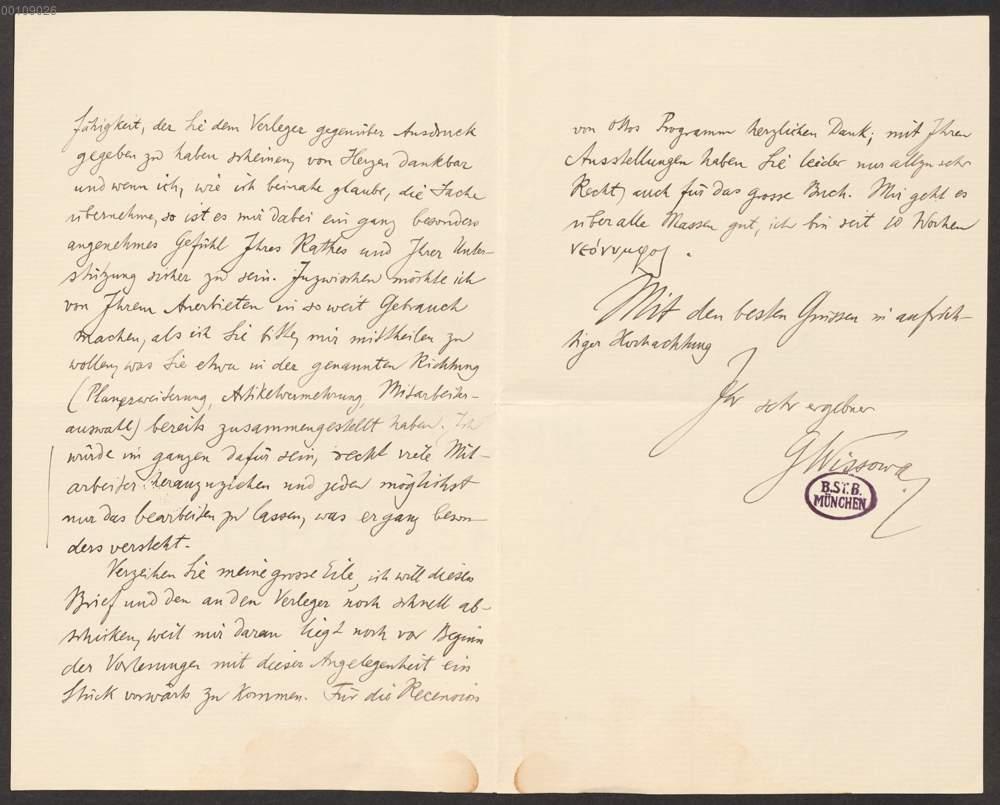 00109026
fähigkeit, der Sie dem Verleger gegenüber Ausdruck
gegeben zu haben scheinen, von Herzen dankbar
und wenn ich, wie ich beinahe glaube, die Sache
übernehme, so ist es mir dabei ein ganz besonders
angenehmes Gefühl Ihres Rathes und Ihrer Unter-
stützung sicher zu sein. Inzwischen möchte ich
von Ihrem Anerbieten in so weit Gebrauch
machen, als ich Sie bitte, mir mittheilen zu
wollen, was Sie etwa in der genannten Richtung
(Planerweiterung, Artikelvermehrung, Mitarbeiter-
auswahl) bereits zusammengestellt haben. Ich
würde im ganzen dafür sein, recht viele Mit-
arbeiter heranzuziehen und jeden möglichst
nur das bearbeiten zu lassen, was er ganz beson-
ders versteht.
Verzeihen Sie meine grosse Eile, ich will diesen
Brief und den an den Verleger noch schnell ab-
schicken, weil mir daran liegt noch vor Beginn
der Vorlesungen mit dieser Angelegenheit ein
Stück vorwärts zu kommen. Für die Recension
von Ottos Programm herzlichen Dank; mit Ihren
Ausstellungen haben Sie leider nur allzu sehr
Recht, auch für das grosse Buch. Mir geht es
über alle Massen gut, ich bin seit 10 Wochen
νεόνυμφος.
Mit den besten Grüssen in aufrich-
tiger Hochachtung
Ihr sehr ergebner
GWissowa.
B.ST.B.
MÜNCHEN